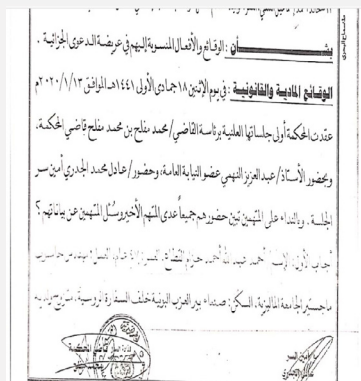 بشأن : الوقائع والأفعال المنسوبة إليهم في عريضة الدعوى الجزائية .
الوقائع المادية والقانونية : في يوم الإثنين ١٨ جمادى الأولى ١٤٤١هـ الموافق ٢٠٢٠/١/١٣م
عقدت المحكمة أولى جلساتها العلنية برئاسة القاضي/ محمد مفلح بن محمد مفلح قاضي المحكمة.
وبحضور الأستاذ/ عبد العزيز النهمي عضو النيابة العامة، وحضور/ عادل محمد الجدري أمين سر
الجلسة . وبالنداء على المتهمين تبين حضورهم جميعاً عدى المتهم الأخير وسئل المتهمين عن بياناتهم ؟
أجاب الأول: الإسم/ أحمد عبد الله أحمد حزام
ماجستير الجامعة الماليزية. السكن: صنعاء خلف السفارة الروسية. متزوج ولديه
قاضي المحكمة
أمين السر